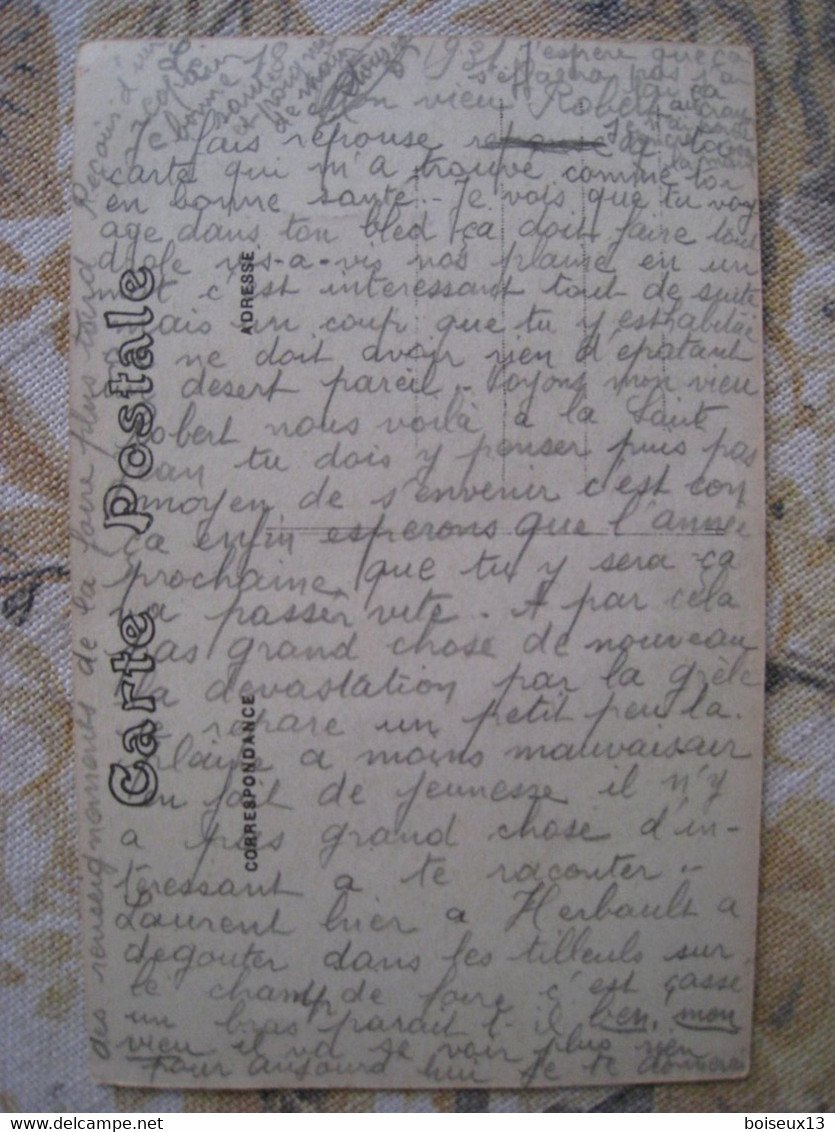 Le 18 1931
Mon vieu Robert
Je fais réponse reponse de toa
carte qui m'a trouvé comme toi
en bonne santé - Je vois que tu voy
age dans ton bled ça doit faire tout
drole vis-a-vis nos plaine en un
mot c'est interessant tout de suite
mais un coup que tu y est habitué
ne doit avoir rien d'epatant
desert pareil - Voyons mon vieu
Robert nous voilà a la Saint
Jean tu dois y penser puis pas
moyen de s'envenir c'est con
ça enfin esperons que l'année
prochaine que tu y sera ça
va passer vite. A par cela
pas grand chose de nouveau
la devastation par la grêle
se repare un petit peu la
plaine a moins mauvais air
En fait de jeunesse il n'y
a pas grand chose d'in-
teressant a te raconter -
Laurent hier a Herbault a
degouter dans les tilleuls sur
le champ de foire c'est çasse
un bras parait t-il ben, mon
vieu il va se voir plus rien
pour aujourd hui je te donnerai
des renseignements de la foire plus tard Reçois d'un
copain
bonne
santé
et poigné
de main
J'espere que ça
s'effacera pas
Carte Postale
ADRESSE
CORRESPONDANCE
boiseux13